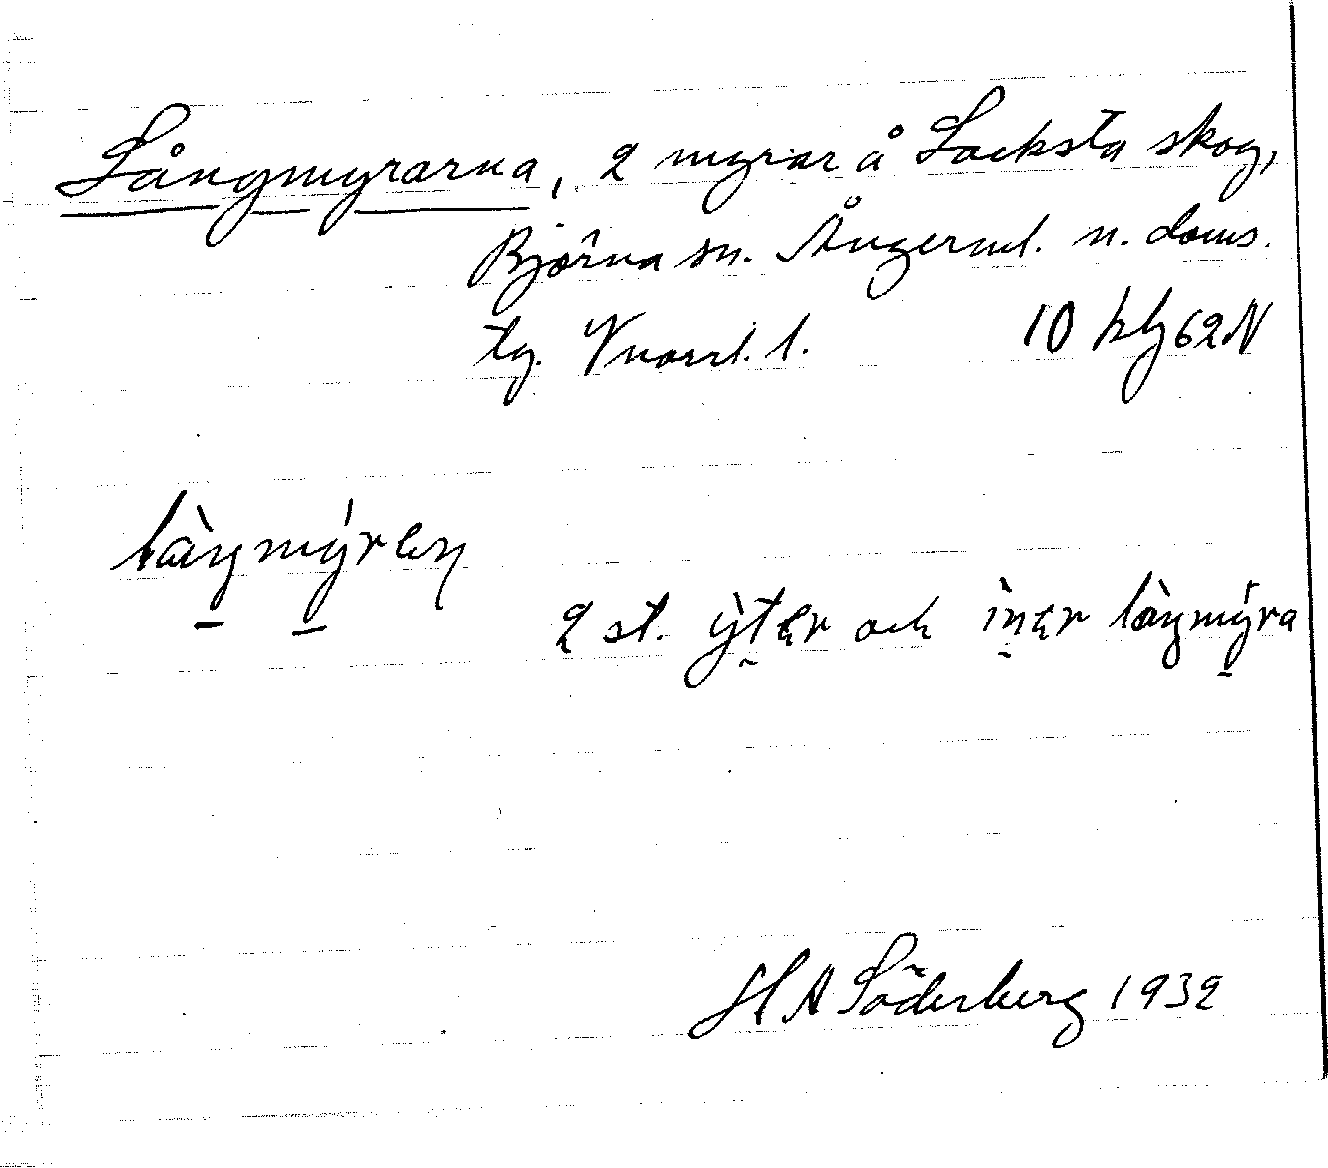 Långmyrarna, 2 myrar å Locksta skog,
Björna sn. Ångerml. n. doms.
tg. Vnorrl. l. 10 hbg 62 N
làŋmýreŋ
2 st. ỳter och ìner làŋmýra
H A Söderberg 1932